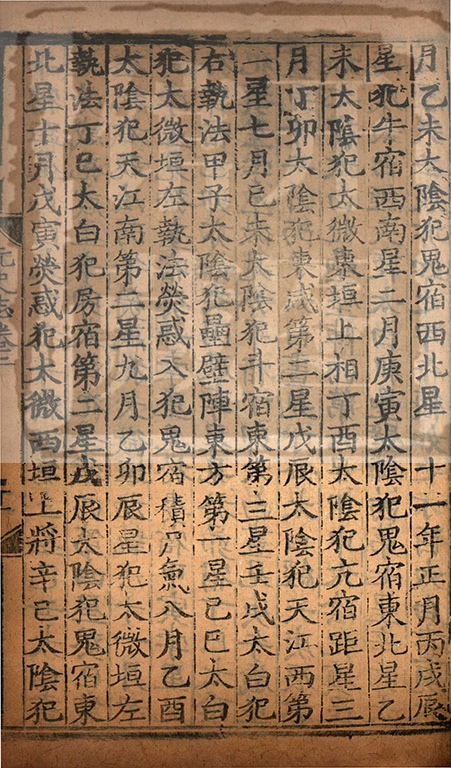 月乙未太陰犯鬼宿西北星　十一年正月丙戌辰
星犯牛宿西南星二月庚寅太陰犯鬼宿東北星乙
未太陰犯太微東垣上相丁酉太陰犯亢宿距星三
月丁卯太陰犯東咸第二星戊辰太陰犯天江西第
一星七月己未太陰犯斗宿東第三星壬戌太白犯
右執法甲子太陰犯壘壁陣東方第一星己巳太白
犯太微垣左執法熒惑入犯鬼宿積尸氣八月乙酉
太陰犯天江南第二星九月乙卯辰星犯太微垣左
執法丁巳太白犯房宿第二星戊辰太陰犯鬼宿東
北星十月戊寅熒惑犯太微西垣上將辛巳太陰犯